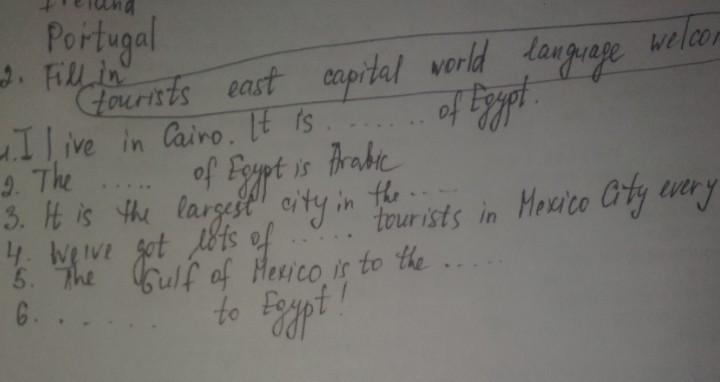 Ireland
Portugal
2. Fill in
tourists east capital world language welco
1. I live in Cairo. It is ........ of Egypt.
2. The ..... of Egypt is Arabic
3. It is the largest city in the ....
4. We've got lots of ..... tourists in Mexico City every
5. The Gulf of Mexico is to the .....
6. ...... to Egypt!